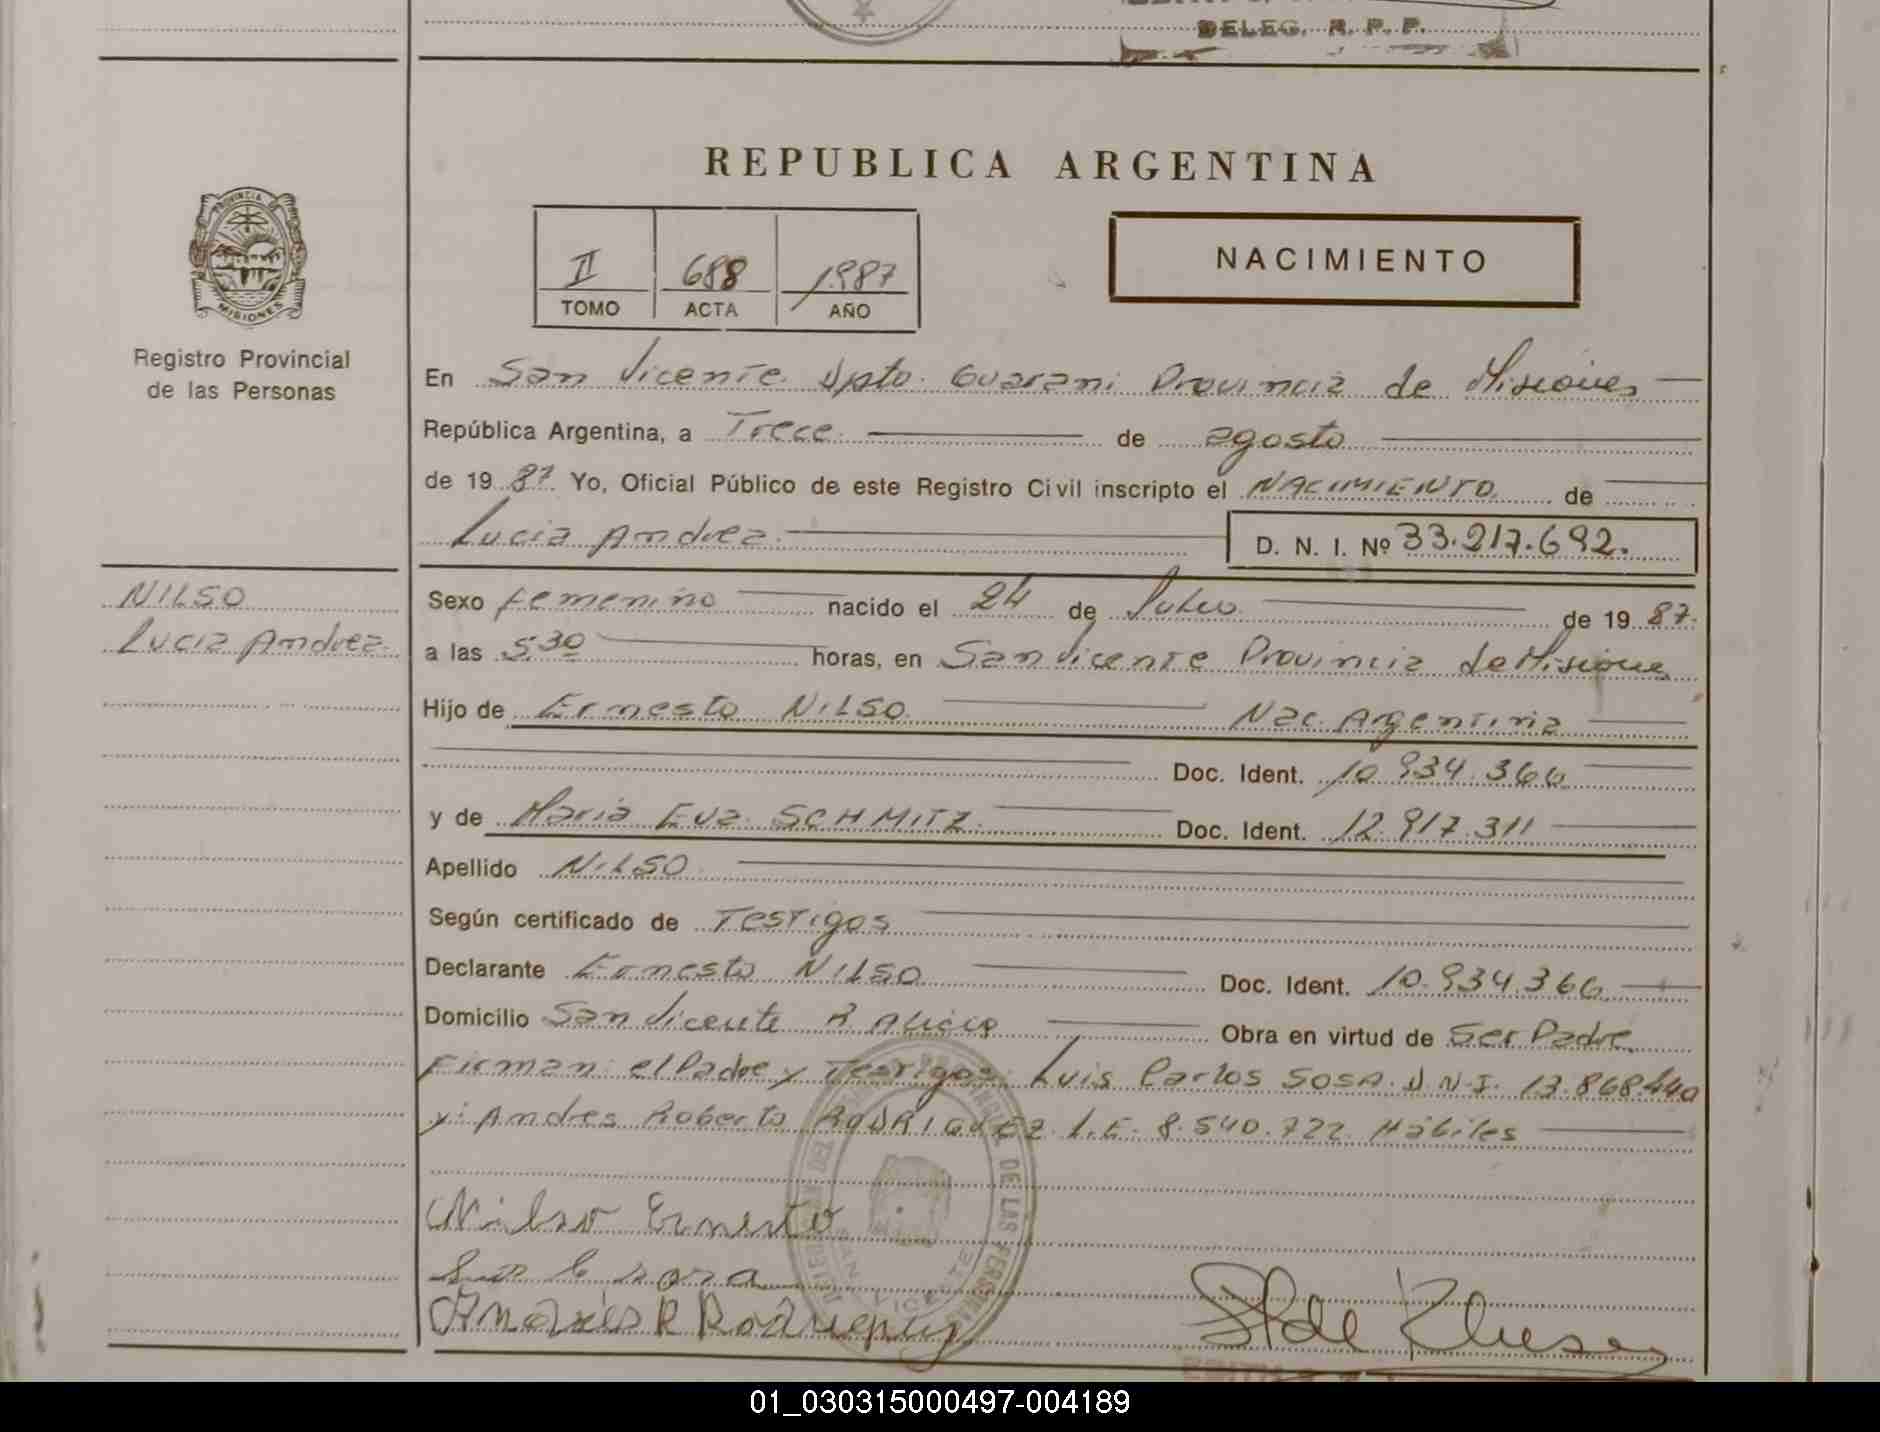 DELEG. R. P. P.
REPUBLICA ARGENTINA
PROVINCIA DE
MISIONES
Registro Provincial
de las Personas
II 688 1987
TOMO ACTA AÑO
NACIMIENTO
En San Vicente Dpto. Guarani Provincia de Misiones
República Argentina, a Trece de agosto
de 19 87 Yo, Oficial Público de este Registro Civil inscripto el NACIMIENTO de
Lucia Andrea D. N. I. Nº 33.217.692.
NILSO
Lucia Andrea
Sexo femenino nacido el 24 de Julio de 19 87.
a las 5.30 horas, en San Vicente Provincia de Misiones
Hijo de Ernesto NILSO Nac. Argentina
Doc. Ident. 10.934.366
y de Maria Eva SCHMITZ Doc. Ident. 12.917.311
Apellido NILSO
Según certificado de Testigos
Declarante Ernesto NILSO Doc. Ident. 10.934.366
Domicilio San Vicente Obra en virtud de Ser Padre
Firman: el Padre y Testigos: Luis Carlos SOSA D.N.I. 13.868.440
y: Andres Roberto RODRIGUEZ L.E. 8.540.722 Hábiles
Nilso Ernesto
SAN VICENTE
01_030315000497-004189